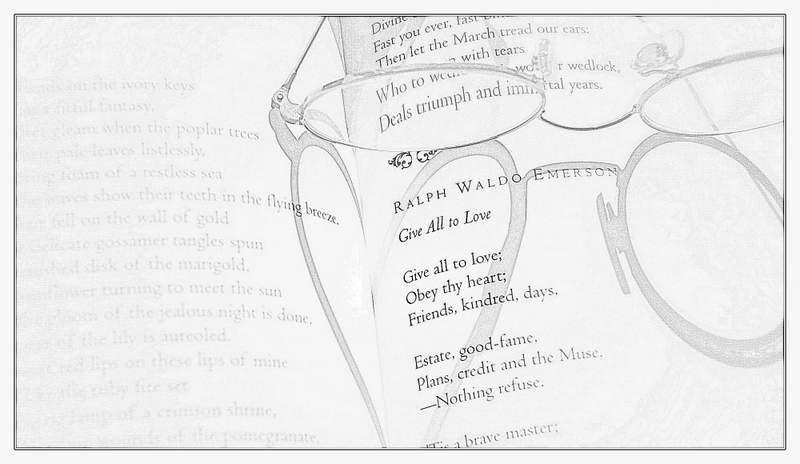 on the ivory keys
a fitful fantasy.
gleam when the poplar trees
pale leaves listlessly,
foam of a restless sea
waves show their teeth in the flying breeze.
fell on the wall of gold
delicate gossamer tangles spun
disk of the marigold,
turning to meet the sun
of the jealous night is done,
of the lily is aureoled.
lips on these lips of mine
ruby fire set
of a crimson shrine,
of the pomegranate,
Divine
Fast you ever, fast
Then let the March tread our ears:
with tears
Who to wedlock,
Deals triumph and immortal years.
RALPH WALDO EMERSON
Give All to Love
Give all to love;
Obey thy heart;
Friends, kindred, days,
Estate, good-fame,
Plans, credit and the Muse.
—Nothing refuse.
'Tis a brave master;